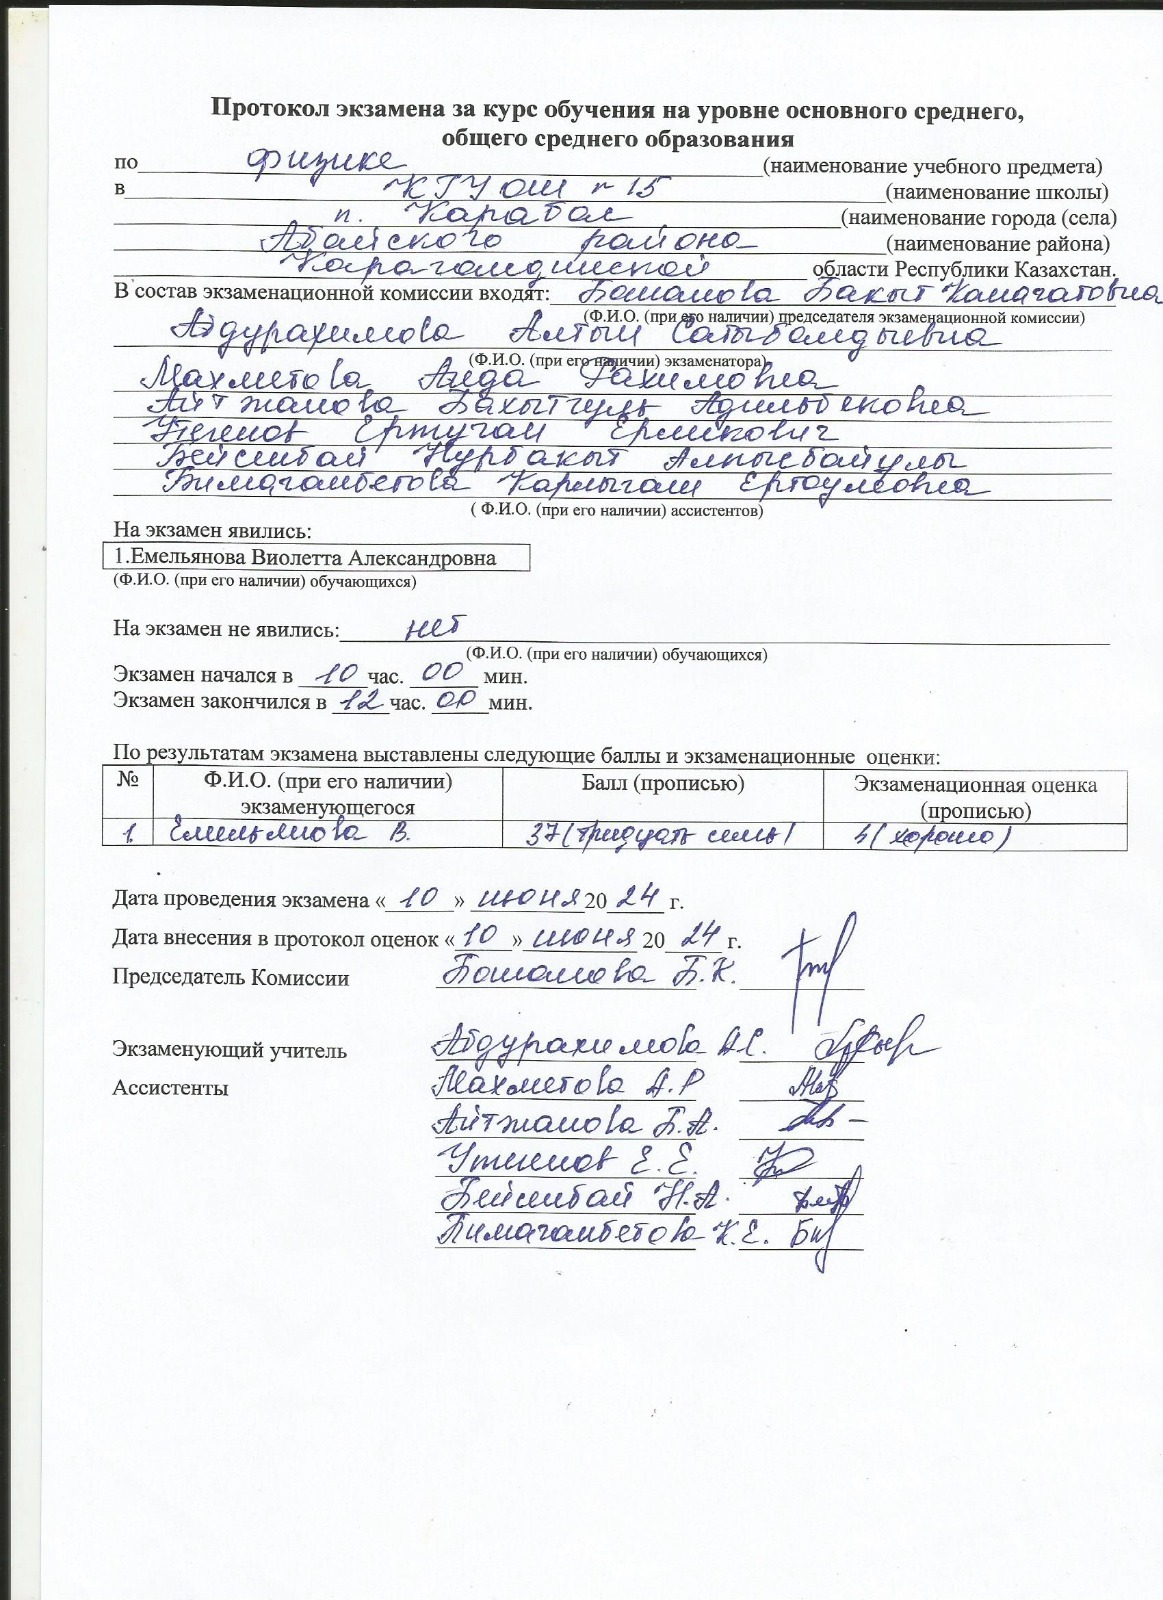 Протокол экзамена за курс обучения на уровне основного среднего,
общего среднего образования
по физике (наименование учебного предмета)
в КГУ ОШ № 15 (наименование школы)
п. Карабас (наименование города (села)
Абайского района (наименование района)
Карагандинской области Республики Казахстан.
В состав экзаменационной комиссии входят: Бошанова Бакыт Канагатовна
(Ф.И.О. (при его наличии) председателя экзаменационной комиссии)
Абдурахимова Алтын Сатыбалдыевна
(Ф.И.О. (при его наличии) экзаменатора)
Махметова Аида Рахимовна
Айтжанова Бахытгуль Адильбековна
Утегенов Ертуган Ермекович
Бейсинбай Нурбакыт Алпысбайулы
Бимагамбетова Карлыгаш Ертоулевна
( Ф.И.О. (при его наличии) ассистентов)
На экзамен явились:
1.Емельянова Виолетта Александровна
(Ф.И.О. (при его наличии) обучающихся)
На экзамен не явились: нет
(Ф.И.О. (при его наличии) обучающихся)
Экзамен начался в 10 час. 00 мин.
Экзамен закончился в 12 час. 00 мин.
По результатам экзамена выставлены следующие баллы и экзаменационные оценки:
№ Ф.И.О. (при его наличии) экзаменующегося Балл (прописью) Экзаменационная оценка (прописью)
1. Емельянова В. 37 (тридцать семь) 4 (хорошо)
Дата проведения экзамена «10» июня 2024 г.
Дата внесения в протокол оценок «10» июня 2024 г.
Председатель Комиссии Бошанова Б.К.
Экзаменующий учитель Абдурахимова А.С.
Ассистенты Махметова А.Р
Айтжанова Б.А.
Утегенов Е.Е.
Бейсинбай Н.А.
Бимагамбетова К.Е.